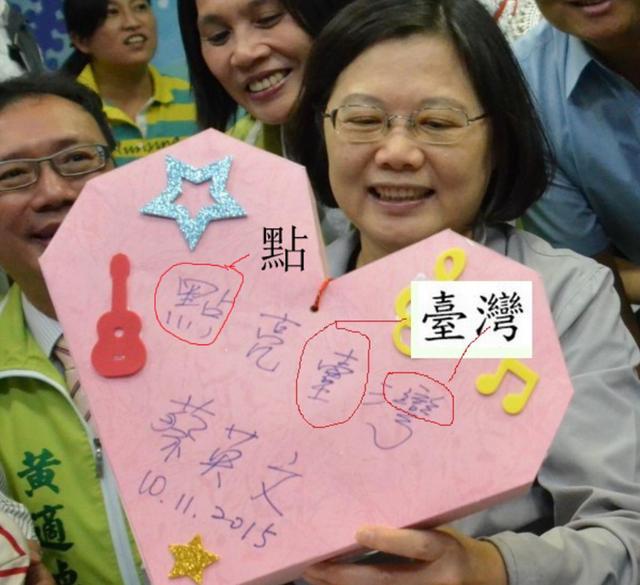 點
臺灣
點亮臺灣
蔡英文
10.11.2015
黃適